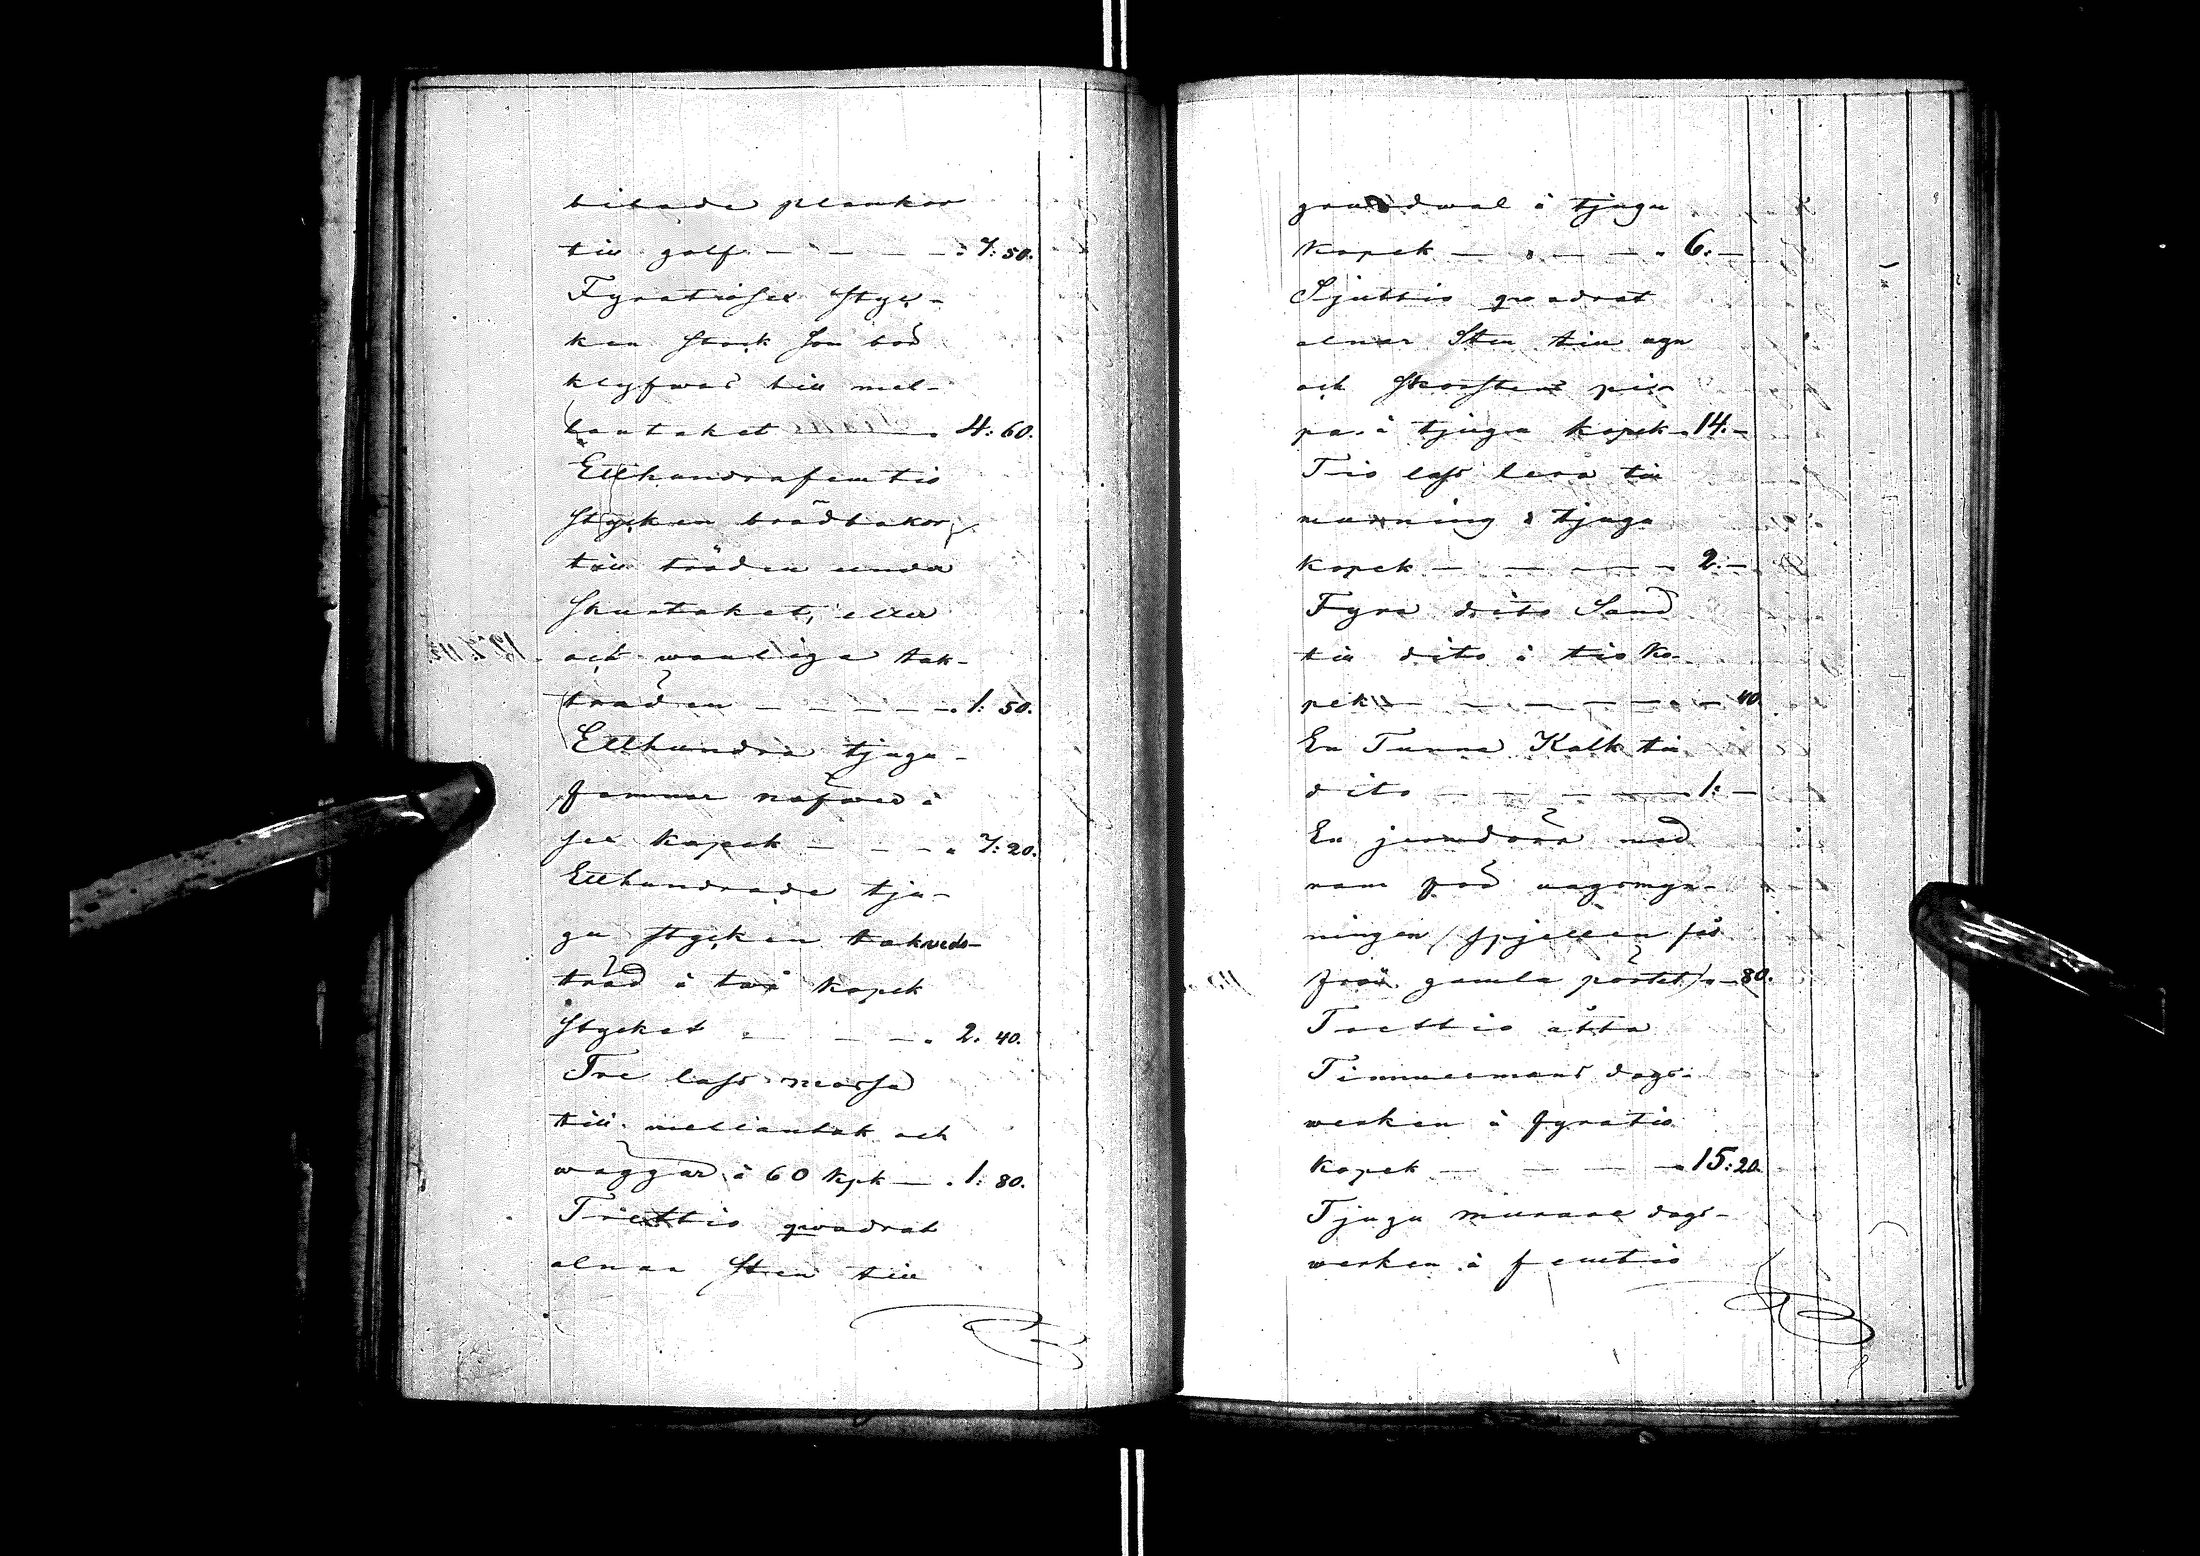 bilade plankor
till golf — — — — „ 7: 50.
Fyratiosex styc-
ken stock som bör
klyfwas till mel-
lantaket — „ 4: 60.
Etthundrafemtio
stycken brädbakor
till träden under
skurtaket, eller
och wanliga tak-
träden — — — — — „ 1: 50.
Etthundra tjugu
famnar näfwer à
sex kopek — — — „ 7: 20.
Etthundrade tju-
gu stycken takveds-
träd à två kopek
stycket — — — „ 2. 40.
Tre lass mossa
till mellantak och
wäggar à 60 kpk — „ 1: 80.
Trettio qwadrat
alnar sten till
grundwal à tjugu
kopek — — — — „ 6. —
Sjuttio qwadrat
alnar Sten till ugn
och skorstens pi-
pa à tjugu kopek „ 14. —
Tio lass lera till
murning à tjugu
kopek — — — — „ 2. —
Fyra dito Sand
till dito à tio ko-
pek — — — — — „ — 40.
En Tunna Kalk till
dito — — — — 1: —
En jerndörr med
ram för ugnsmyn-
ningen / spjellen fås
från gamla pörtet / „ — 80.
Trettio åtta
Timmermans dags-
werken à fyratio
kopek — — — — „ 15: 20.
Tjugu murare dags-
werken à femtio